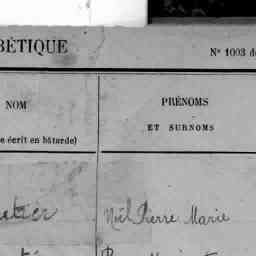 BÉTIQUE
N° 1003 de
NOM
e écrit en bâtarde)
PRÉNOMS
ET SURNOMS
Noël Pierre Marie